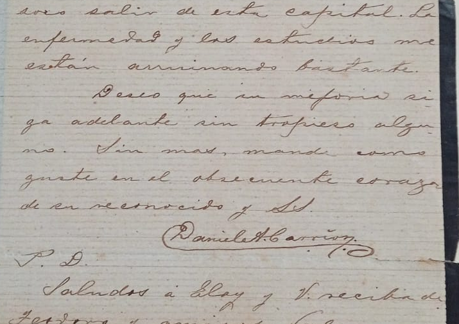 sos salir de esta capital. La
enfermedad y los estudios me
están arruinando bastante.
Deseo que su mejoria si
ga adelante sin tropieso algu
no. Sin mas, mande como
guste en el obsecuente corazon
de su reconocido y SS.
Daniel A. Carrión.
P. D.
Saludos á Eloy y V. reciba de
Teodora y